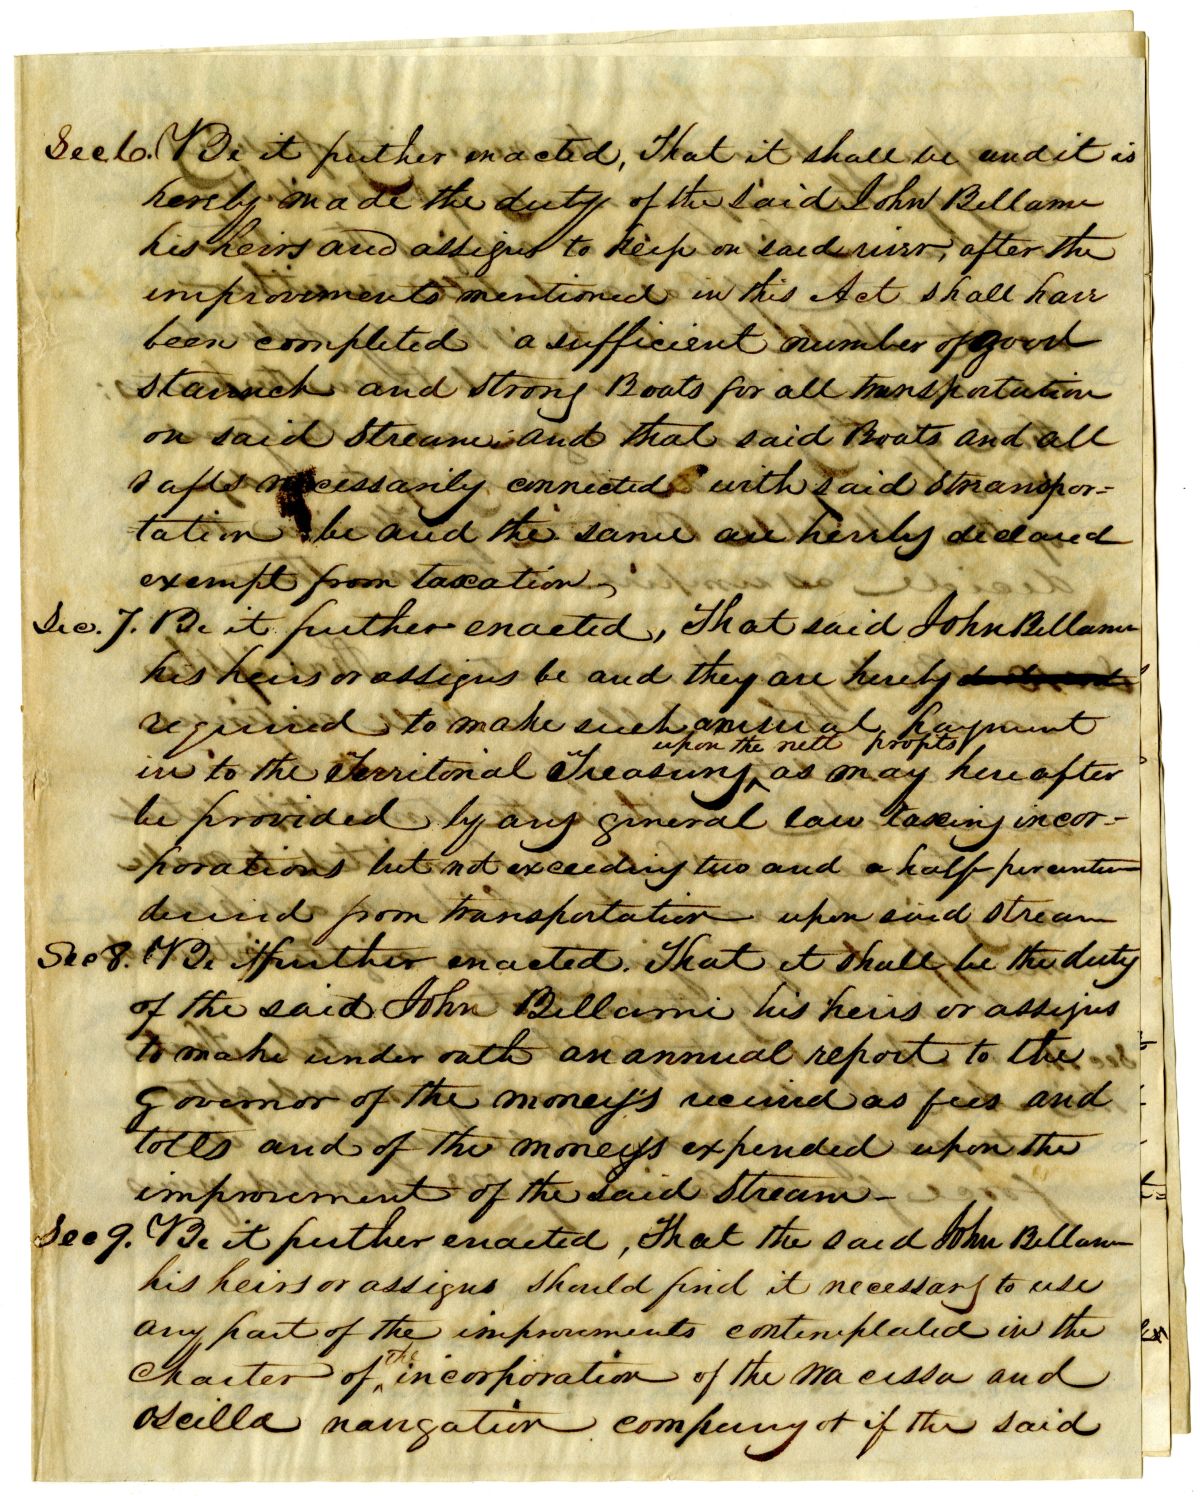 Sec 6. Be it further enacted, That it shall be and it is
hereby made the duty of the said John Bellame
his heirs and assigns to keep on said river, after the
improvements mentioned in this Act shall have
been completed a sufficient number of good
staunch and strong Boats for all transportation
on said Stream; and that said Boats and all
rafts necessarily connected with said Stranspor=
tation be and the same are hereby declared
exempt from taxation,
Sec. 7. Be it further enacted, That said John Bellame
his heirs or assigns be and they are hereby
required to make such annual payment
upon the nett profits
in to the Territorial Treasury ^ as may hereafter
be provided by any general law taxing incor-
porations but not exceeding two and a half per centum
derived from transportation upon said Stream
Sec 8. Be it further enacted. That it shall be the duty
of the said John Bellami his heirs or assigns
to make under oath an annual report to the
Governor of the money's received as fees and
tolls and of the money's expended upon the
improvement of the said Stream-
Sec 9. Be it further enacted, That the said John Bellame
his heirs or assigns should find it necessary to use
any part of the improvements contemplated in the
the
Charter of ^ incorporation of the Wacissa and
Oscilla navigation company or if the said